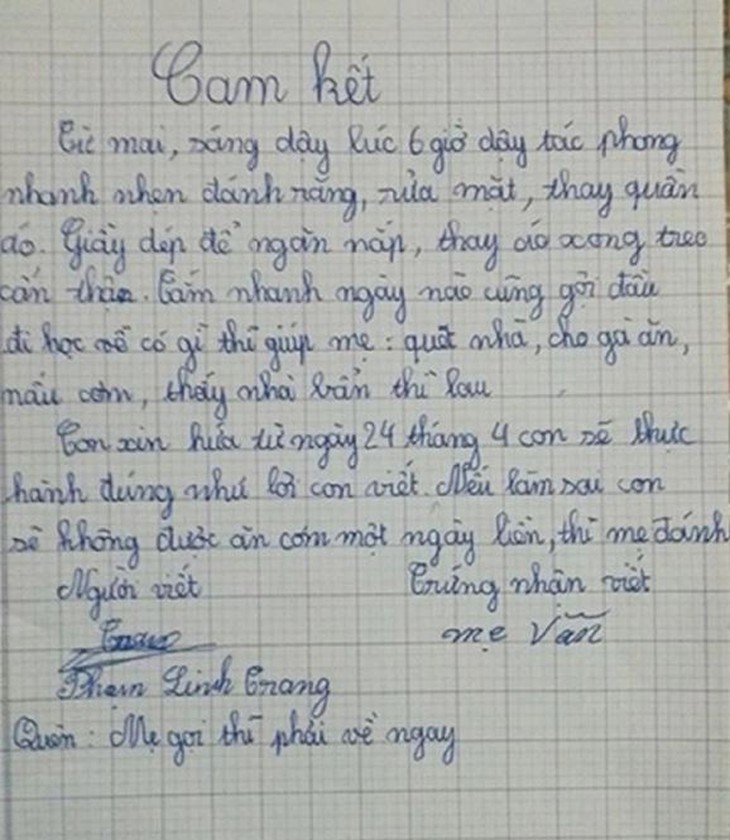 Cam kết
Từ mai, sáng dậy lúc 6 giờ dậy tác phong
nhanh nhẹn đánh răng, rửa mặt, thay quần
áo. Giầy dép để ngăn nắp, thay áo xong treo
cẩn thận. Tắm nhanh ngày nào cũng gội đầu
đi học về có gì thì giúp mẹ: quét nhà, cho gà ăn,
nấu cơm, thấy nhà bẩn thì lau
Con xin hứa từ ngày 24 tháng 4 con sẽ thực
hành đúng như lời con viết. Nếu làm sai con
sẽ không được ăn cơm một ngày liền, thì mẹ đánh
Người viết Trứng nhận viết
Trang mẹ Văn
Phạm Linh Trang
Quên: Mẹ gọi thì phải về ngay